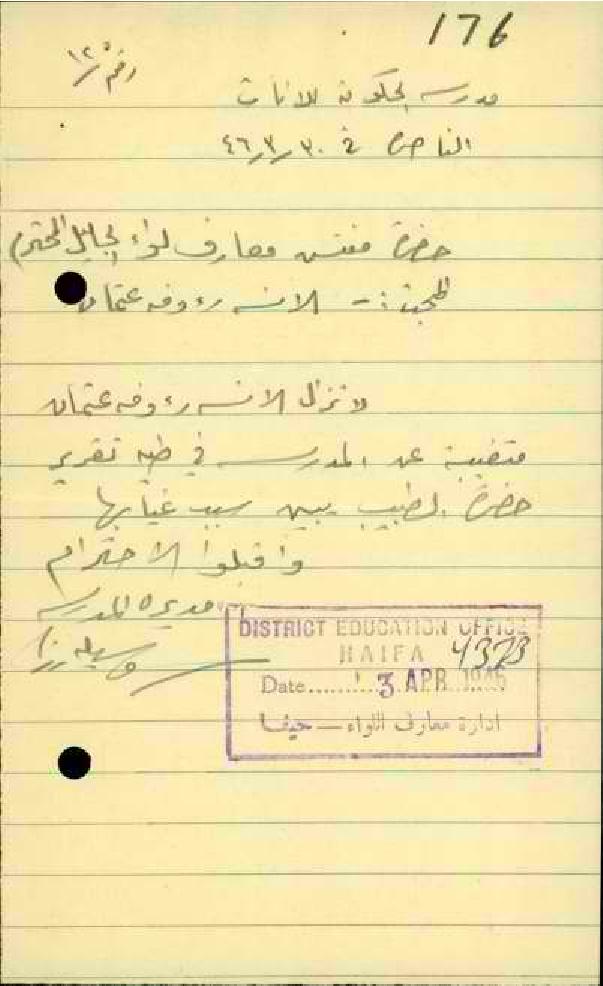 176
رقم ١٢
مدرسة الحكومة للاناث
الناصرة في ٣٠/٣/٤٦
حضرة مفتش معارف لواء الجليل المحترم
المبحث :- الانسه رءوفه عثمان
لا تزال الانسه رءوفه عثمان
متغيبة عن المدرسه في طيه تقرير
حضرة الطبيب يبين سبب غيابها
واقبلوا الاحترام
مديرة المدرسه
DISTRICT EDUCATION OFFICE
HAIFA 4373
Date 3 APR 1946
ادارة معارف اللواء — حيفا